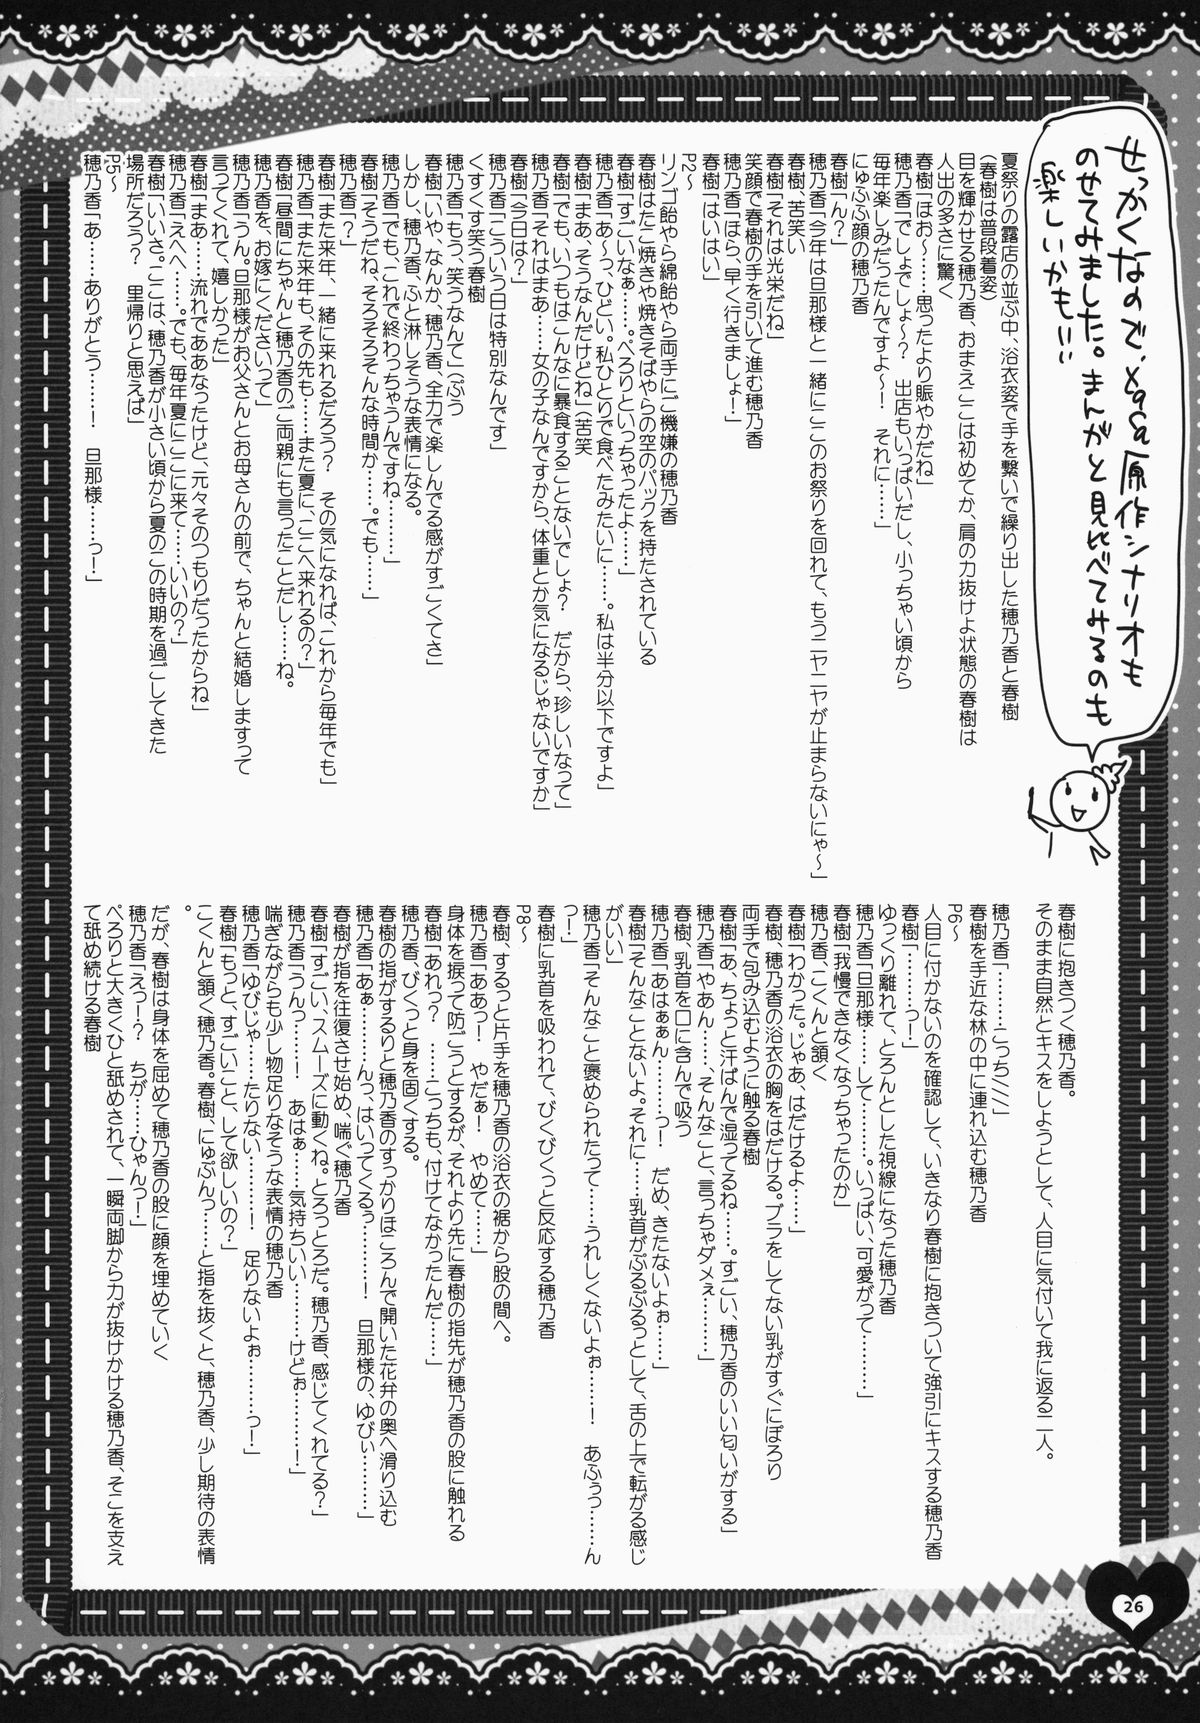 せっかくなので、xqsa原作シナリオも
のせてみました。まんがと見比べてみるのも
楽しいかも!!!
夏祭りの露店の並ぶ中、浴衣姿で手を繋いで繰り出した穂乃香と春樹
(春樹は普段着姿)
目を輝かせる穂乃香、おまえここは初めてか、肩の力抜けよ状態の春樹は
人出の多さに驚く
春樹「はお~……思ったより賑やかだね」
穂乃香「でしょでしょ~? 出店もいっぱいだし、小っちゃい頃から
毎年楽しみだったんですよ~! それに……」
にゅふふ顔の穂乃香
春樹「ん?」
穂乃香「今年は旦那様と一緒にここのお祭りを回れて、もうニヤニヤが止まらないにゃ~」
春樹、苦笑い
春樹「それは光栄だね」
笑顔で春樹の手を引いて進む穂乃香
穂乃香「ほら、早く行きましょ!」
春樹「はいはい」
P2~
リンゴ飴やら綿飴やら両手にご機嫌の穂乃香
春樹はたこ焼きや焼きそばやらの空のパックを持たされている
春樹「すごいなぁ……。ぺろりといっちゃったよ……」
穂乃香「あ~っ、ひどい。私ひとりで食べたみたいに……。私は半分以下ですよ」
春樹「まあ、そうなんだけどね」(苦笑
春樹「でも、いつもはこんなに暴食することないでしょ? だから、珍しいなって」
穂乃香「それはまあ……女の子なんですから、体重とか気になるじゃないですか」
春樹「今日は?」
穂乃香「こういう日は特別なんです」
くすくす笑う春樹
穂乃香「もう、笑うなんて」(ぷう
春樹「いや、なんか、穂乃香、全力で楽しんでる感がすごくてさ」
しかし、穂乃香、ふと淋しそうな表情になる。
穂乃香「でも、これで終わっちゃうんですね……」
春樹「そうだね、そろそろそんな時間か……。でも……」
穂乃香「?」
春樹「また来年、一緒に来れるだろう? その気になれば、これから毎年でも」
穂乃香「また来年も、その先も……また夏に、ここへ来れるの?」
春樹「昼間にちゃんと穂乃香のご両親にも言ったことだし……ね。
穂乃香を、お嫁にくださいって」
穂乃香「うん。旦那様がお父さんとお母さんの前で、ちゃんと結婚しますって
言ってくれて、嬉しかった」
春樹「まあ……流れでああなったけど、元々そのつもりだったからね」
穂乃香「えへへ……。でも、毎年夏にここに来て……いいの?」
春樹「いいさ。ここは、穂乃香が小さい頃から夏のこの時期を過ごしてきた
場所だろう? 里帰りと思えば」
P5~
穂乃香「あ……ありがとう……! 旦那様……っ!」
春樹に抱きつく穂乃香。
そのまま自然とキスをしようとして、人目に気付いて我に返る二人。
穂乃香「………こっち///」
春樹を手近な林の中に連れ込む穂乃香
P6~
人目に付かないのを確認して、いきなり春樹に抱きついて強引にキスする穂乃香
春樹「………っ!」
ゆっくり離れて、とろんとした視線になった穂乃香
穂乃香「旦那様……して………。いっぱい、可愛がって………」
春樹「我慢できなくなっちゃったのか」
穂乃香、こくんと頷く
春樹「わかった。じゃあ、はだけるよ……」
春樹、穂乃香の浴衣の胸をはだける。ブラをしてない乳がすぐにぽろり
両手で包み込むように触る春樹
春樹「あ、ちょっと汗ばんで湿ってるね……。すごい、穂乃香のいい匂いがする」
穂乃香「やあん……、そんなこと、言っちゃダメぇ………」
春樹、乳首を口に含んで吸う
穂乃香「あはぁぁん………っ! だめ、きたないよぉ……」
春樹「そんなことないよ。それに……乳首がぷるぷるっとして、舌の上で転がる感じ
がいい」
穂乃香「そんなこと褒められたって……うれしくないよぉ……! あふぅっ……ん
っ!」
春樹に乳首を吸われて、びくびくっと反応する穂乃香
P8~
春樹、するっと片手を穂乃香の浴衣の裾から股の間へ。
穂乃香「ああっ! やだぁ! やめて……」
身体を捩って防ごうとするが、それより先に春樹の指先が穂乃香の股に触れる
春樹「あれっ? ……こっちも、付けてなかったんだ……」
穂乃香、びくっと身を固くする。
春樹の指がするりと穂乃香のすっかりほころんで開いた花弁の奥へ滑り込む
穂乃香「あぁ………んっ、はいってくるっ………! 旦那様の、ゆびぃ………」
春樹が指を往復させ始め、喘ぐ穂乃香
春樹「すごい、スムーズに動くね。とろっとろだ。穂乃香、感じてくれてる?」
穂乃香「うんっ……! あはぁ……気持ちいい………けどぉ………!」
喘ぎながらも少し物足りなそうな表情の穂乃香
穂乃香「ゆびじゃ……たりない………! 足りないよぉ………っ!」
春樹「もっと、すごいこと、して欲しいの?」
こくんと頷く穂乃香。春樹、にゅぷんっ……と指を抜くと、穂乃香、少し期待の表情
。
だが、春樹は身体を屈めて穂乃香の股に顔を埋めていく
穂乃香「えっ!? ちが……ひゃんっ!」
ぺろりと大きくひと舐めされて、一瞬両脚から力が抜けかける穂乃香、そこを支え
て舐め続ける春樹
26